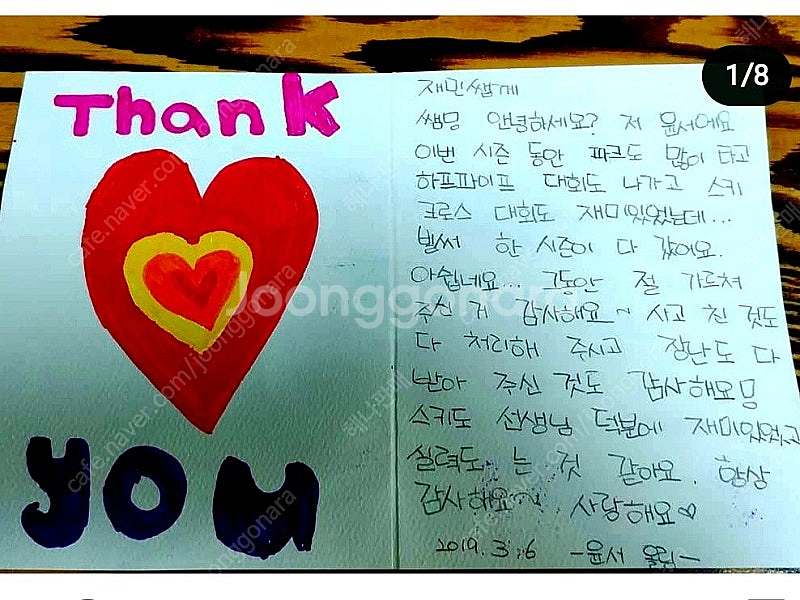 1/8
Thank
you
재민쌤게
쌤밍 안녕하세요? 저 윤서에요
이번 시즌 동안 파크도 많이 타고
하프파이프 대회도 나가고 스키
크로스 대회도 재미있었는데...
벌써 한 시즌이 다 갔어요.
아쉽네요... 그동안 절 가르쳐
주신 거 감사해요~ 사고 친 것도
다 처리해 주시고 장난도 다
받아 주신 것도 감사해요밍
스키도 선생님 덕분에 재미있었고
실력도 는 것 같아요. 항상
감사해요~ 사랑해요♡
2019. 3. 6 -윤서 올림-
Joonggonara
cafe.naver.com/joonggonara